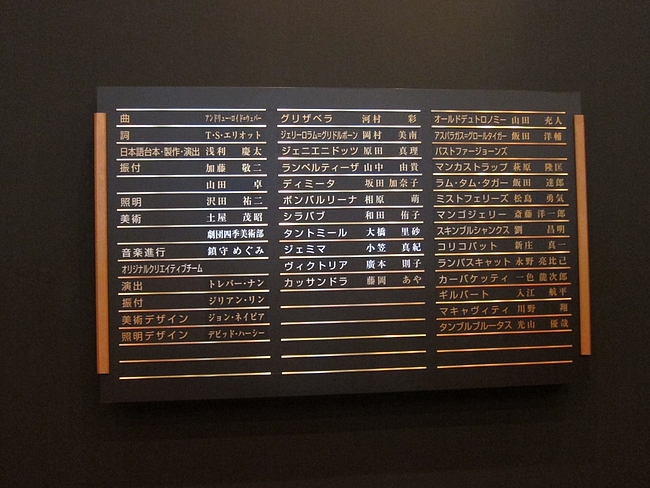 曲 アンドリュー・ロイド=ウェバー
詞 T・S・エリオット
日本語台本・製作・演出 浅利 慶太
振付 加藤 敬二
山田 卓
照明 沢田 祐二
美術 土屋 茂昭
劇団四季美術部
音楽進行 鎮守 めぐみ
オリジナルクリエイティブチーム
演出 トレバー・ナン
振付 ジリアン・リン
美術デザイン ジョン・ネイピア
照明デザイン デビッド・ハーシー
グリザベラ 河村 彩
ジェリーロラム=グリドルボーン 岡村 美南
ジェニエニドッツ 原田 真理
ランペルティーザ 山中 由貴
ディミータ 坂田 加奈子
ボンバルリーナ 相原 萌
シラバブ 和田 侑子
タントミール 大橋 里砂
ジェミマ 小笠 真紀
ヴィクトリア 廣本 則子
カッサンドラ 藤岡 あや
オールドデュトロノミー 山田 充人
アスパラガス=グロールタイガー 飯田 洋輔
バストファージョーンズ
マンカストラップ 萩原 隆匡
ラム・タム・タガー 飯田 達郎
ミストフェリーズ 松島 勇気
マンゴジェリー 斎藤 洋一郎
スキンブルシャンクス 劉 昌明
コリコパット 新庄 真一
ランパスキャット 永野 亮比己
カーバケッティ 一色 龍次郎
ギルバート 入江 航平
マキャヴィティ 川野 翔
タンブルブルータス 光山 優哉